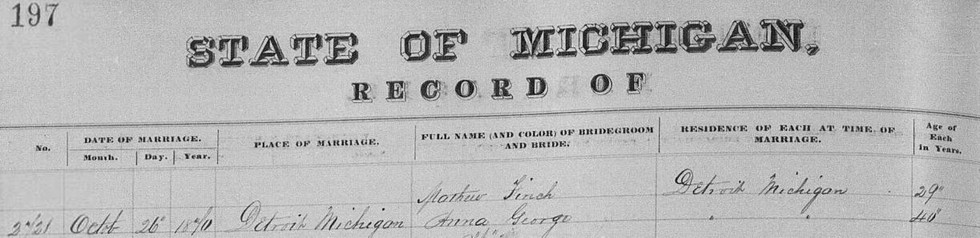 197
STATE OF MICHIGAN,
RECORD OF
No. DATE OF MARRIAGE. PLACE OF MARRIAGE. FULL NAME (AND COLOR) OF BRIDEGROOM AND BRIDE. RESIDENCE OF EACH AT TIME OF MARRIAGE. Age of Each in Years.
Month. Day. Year.
Mathew Finch Detroit Michigan 29"
Octb 26" 1870 Detroit Michigan Anna George " " 40"